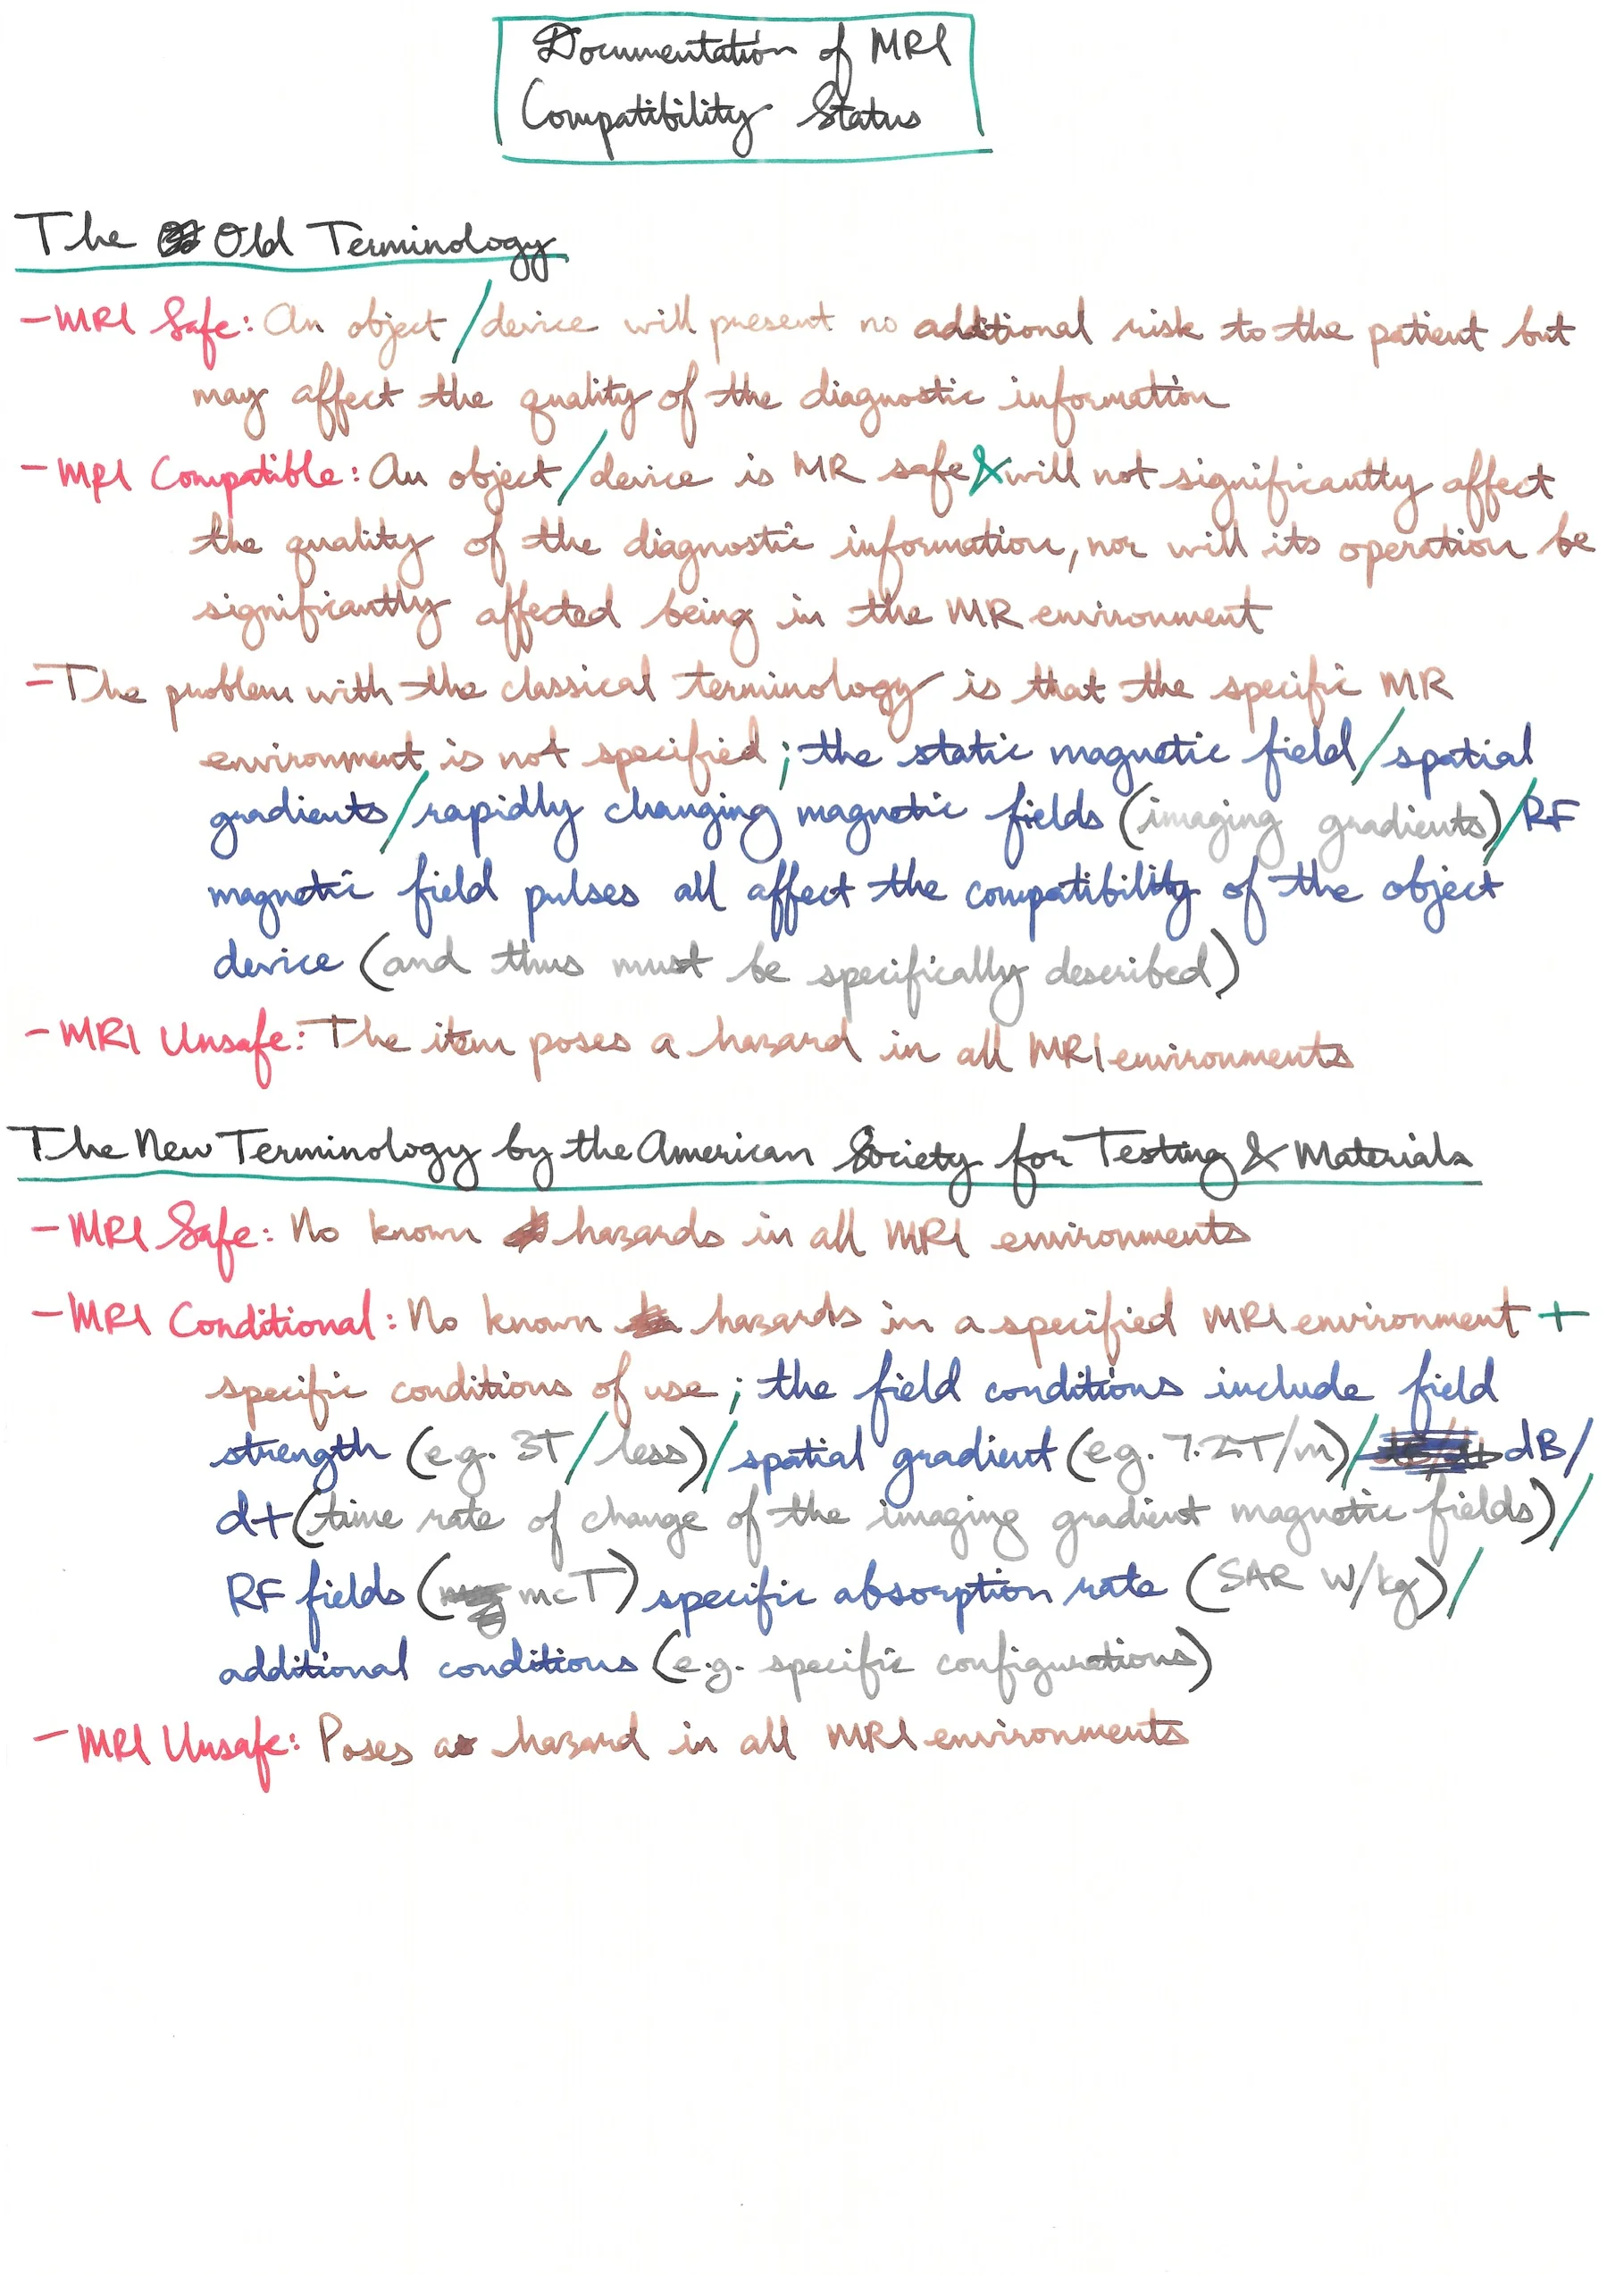 Documentation of MRI
Compatibility Status
The Old Terminology
- MRI Safe: An object/device will present no additional risk to the patient but
may affect the quality of the diagnostic information
- MRI Compatible: An object/device is MR safe & will not significantly affect
the quality of the diagnostic information, nor will its operation be
significantly affected being in the MR environment
- The problem with the classical terminology is that the specific MR
environment is not specified; the static magnetic field/spatial
gradients/rapidly changing magnetic fields (imaging gradients)/RF
magnetic field pulses all affect the compatibility of the object
device (and thus must be specifically described)
- MRI Unsafe: The item poses a hazard in all MRI environments
The New Terminology by the American Society for Testing & Materials
- MRI Safe: No known hazards in all MRI environments
- MRI Conditional: No known hazards in a specified MRI environment +
specific conditions of use; the field conditions include field
strength (e.g. 3T/less)/spatial gradient (e.g. 7.2T/m)/dB/
dt (time rate of change of the imaging gradient magnetic fields)/
RF fields (mcT) specific absorption rate (SAR W/kg)/
additional conditions (e.g. specific configurations)
- MRI Unsafe: Poses a hazard in all MRI environments